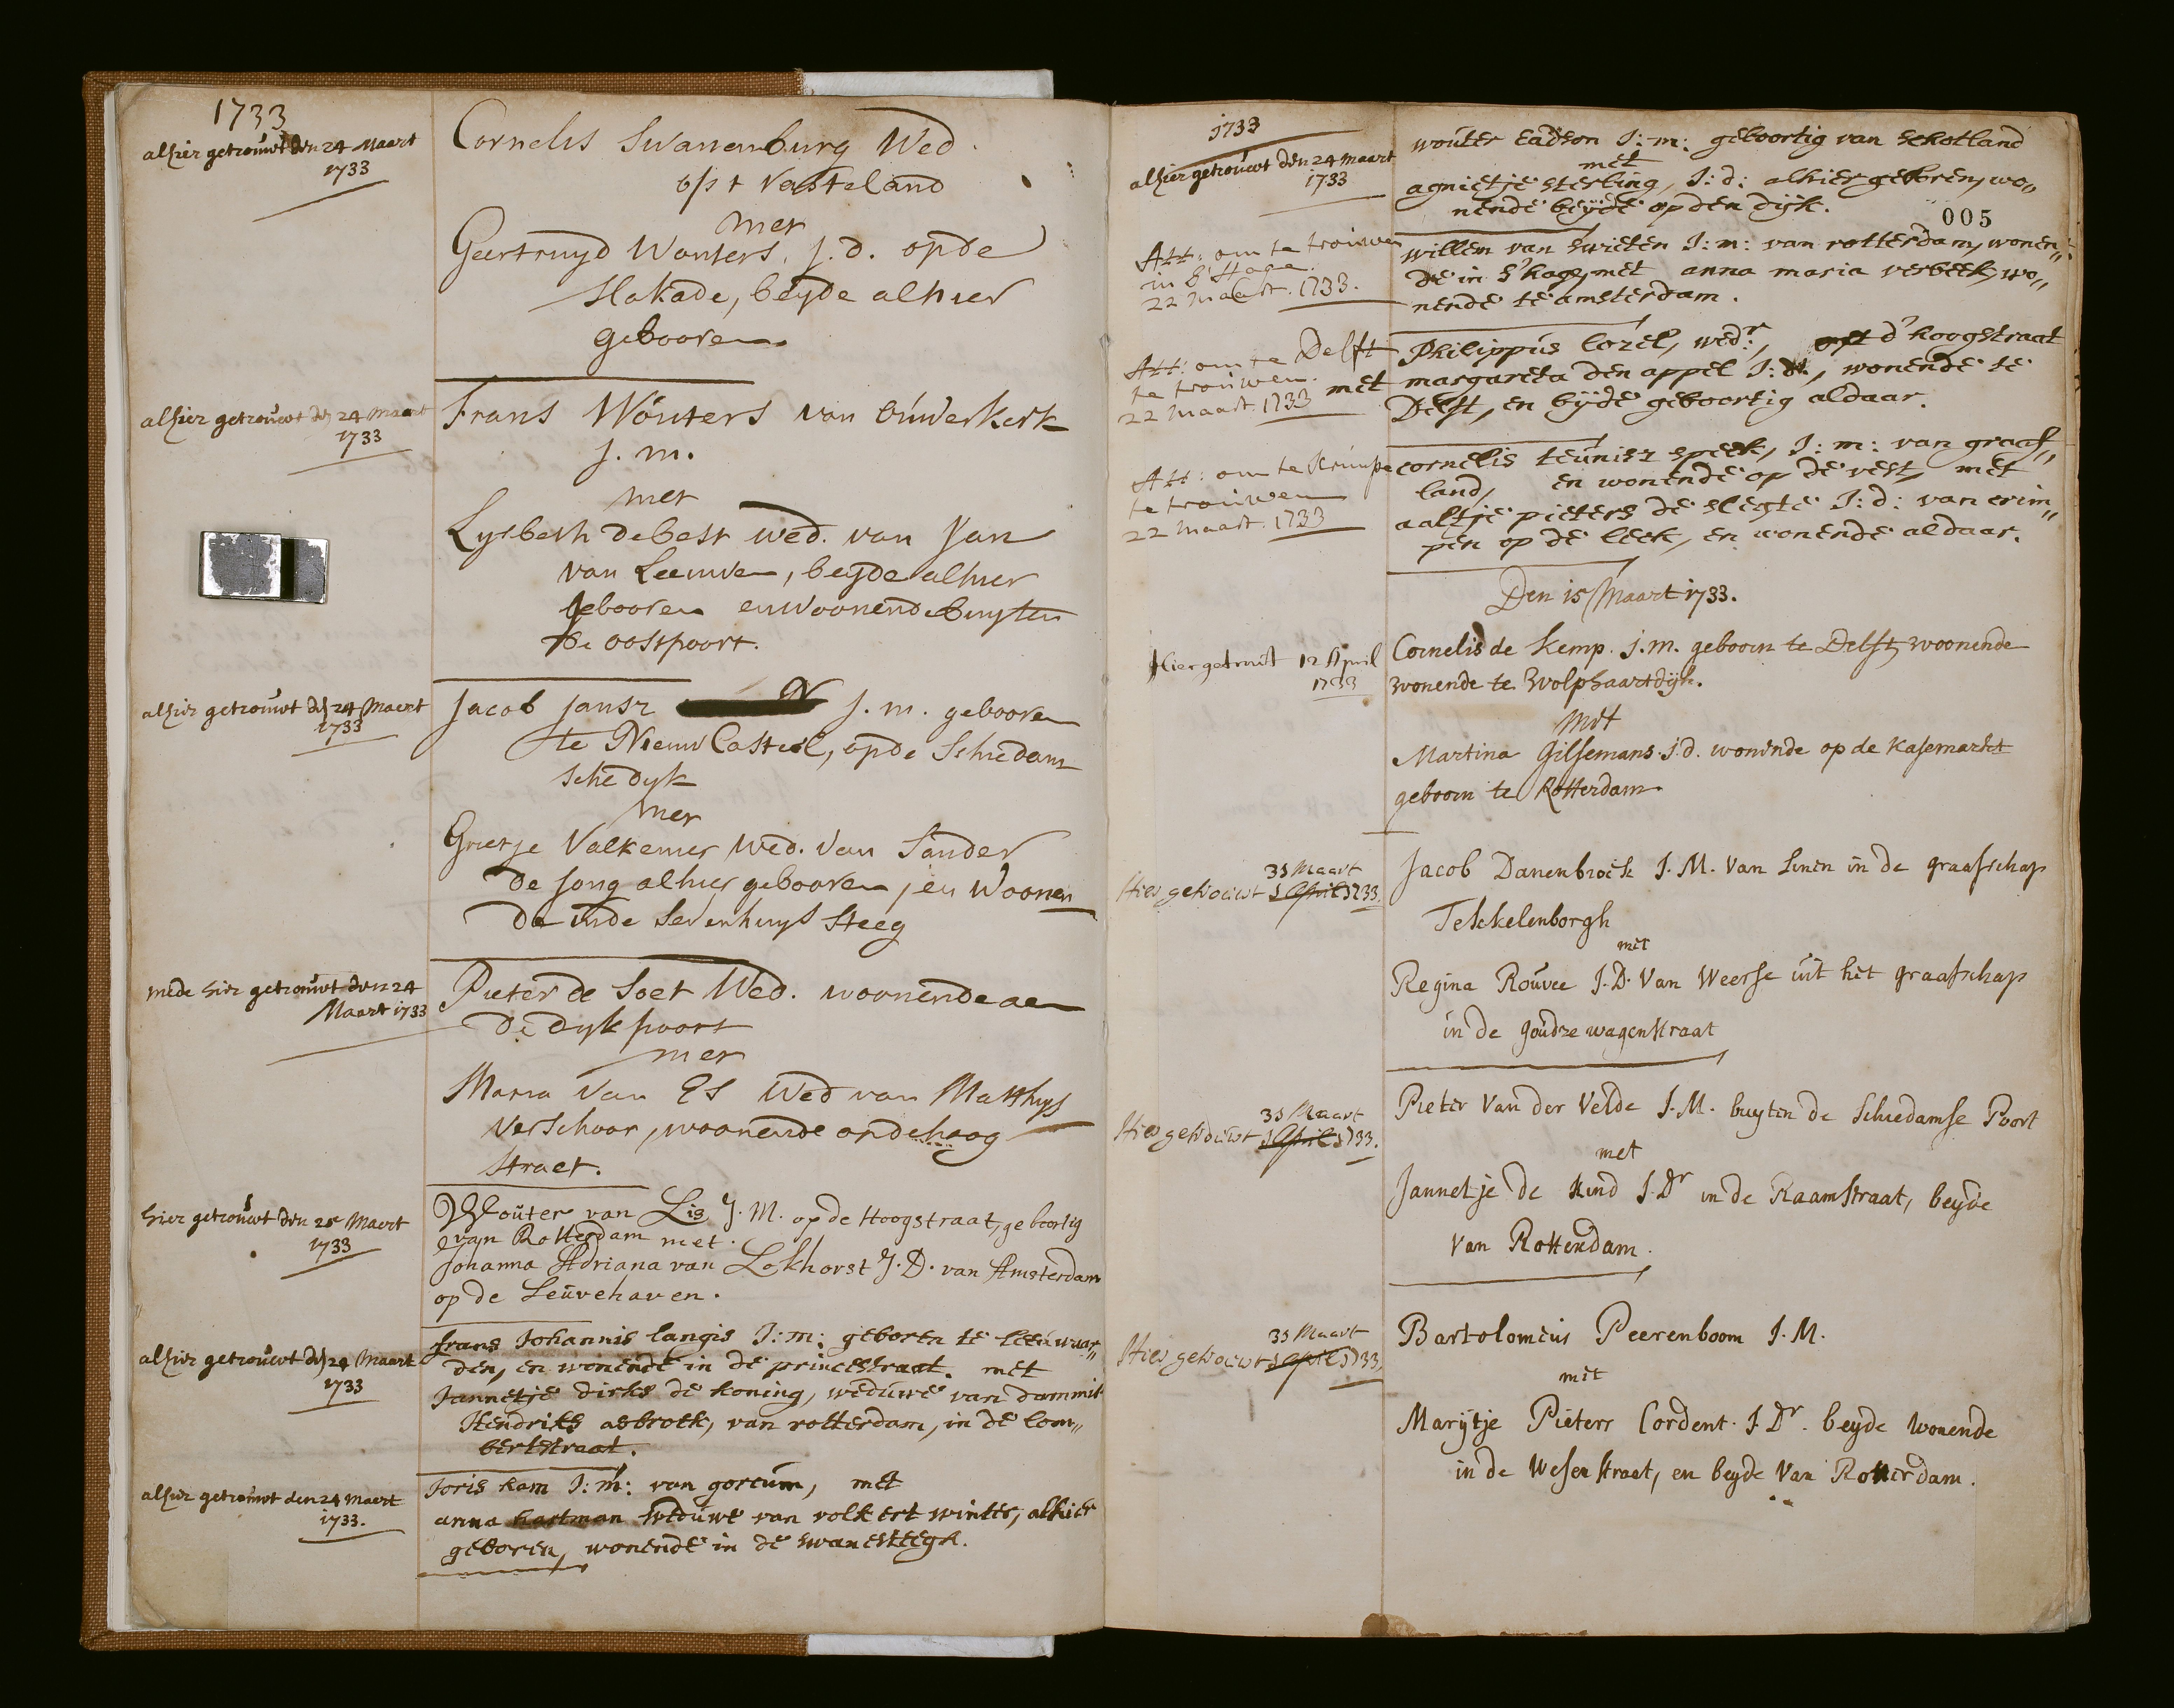 1733
alhier getrouwt den 24 Maart
1733
Cornelis Swanenburg Wed.
op t Vasteland
met
Geertruyd Wouters. j.d. op de
Slakade, beyde alhier
gebooren
alhier getrouwt den 24 maart
1733
Frans Wouters van Ouwerkerk
j. m.
met
Lysbeth de best wed. van Jan
van Leeuwen, beyde alhier
gebooren en Woonende buyten
de oostpoort.
alhier getrouwt den 24 Maert
1733
Jacob Jansz j. m. gebooren
te Nieuw Casteel, op de Schiedam
sche dyk
met
Grietje Valkenier Wed. van Sander
de Jong alhier gebooren, en Woonen
de in de Sevenhuys Steeg
mede hier getrouwt den 24
Maart 1733
Pieter de Soet Wed. woonende aen
de dyk poort
met
Maria van Es Wed van Matthys
Verschoor, woonende op de hoog
straet.
hier getrouwt den 25 Maert
1733
Wouter van Lis J. M. op de Hoogstraat, geboortig
van Rotterdam met.
Johanna Adriana van Lokhorst J. D. van Amsterdam
op de Leuvehaven.
alhier getrouwt den 24 Maart
1733
frans Johannis langis J: m: geboren te leeuwaar„
den, en wonende in de princestraat. met
Jannetje dirks de koning, weduwe van dammis
Hendriks asbroek, van rotterdam, in de lom„
bertstraat.
alhier getrouwt den 24 maert
1733.
Joris kam J: m: van gorcum, met
anna hartman weduwe van volkert winter, alhier
geboren, wonende in de swanesteegh.
1733
alhier getrouwt den 24 maart
1733
wouter eadson J: m: geboortig van schotland
met
agnietje sterling, J: d: alhier geboren, wo„
nende beyde op den dijk.
005
Att: om te trouwen
in s' Hage.
22 maart. 1733.
willem van swieten J: m: van rotterdam, wonen„
de in s'hage, met anna maria verbeek, wo„
nende te amsterdam.
Att: om te Delft
te trouwen.
22 maart. 1733
Philippus lozel, wedr:, opt d'hoogstraat
met margareta den appel J: d:, wonende te
Delft, en byde geboortig aldaar.
Att: om te Krimpe
te trouwen
22 maart. 1733
cornelis teunisz speek, J: m: van graaf„
land, en wonende op de vest, met
aaltje pieters de slegte J: d: van crim„
pen op de leck, en wonende aldaar.
Den 15 Maart 1733.
Hier getrout 12 April
1733
Cornelis de Kemp. j.m. geboorn te Delft woonende
wonende te Wolphaartdijk.
Met
Martina Gilsemans. j.d. wonende op de Kasemarkt
geboorn te Rotterdam.
31 Maart
Hier getrouwt 1 April 1733.
Jacob Danenbroek J. M. Van Linen in de graafschap
Tekkelenborgh
met
Regina Rouvee J. D. Van Weerse uit het graafschap
in de goudze wagenstraat
31 Maart
Hier getrouwt 1 April 1733.
Pieter Van der Velde J. M. buyten de Schiedamse Poort
met
Jannetje de Kind J. Dr in de Raamstraat, beyde
Van Rotterdam.
31 Maart
Hier getrouwt 1 April 1733
Bartolomeus Peerenboom J. M.
met
Marijtje Pieters Cordent. J. Dr. beyde wonende
in de Wesenstraat, en beyde Van Rotterdam.